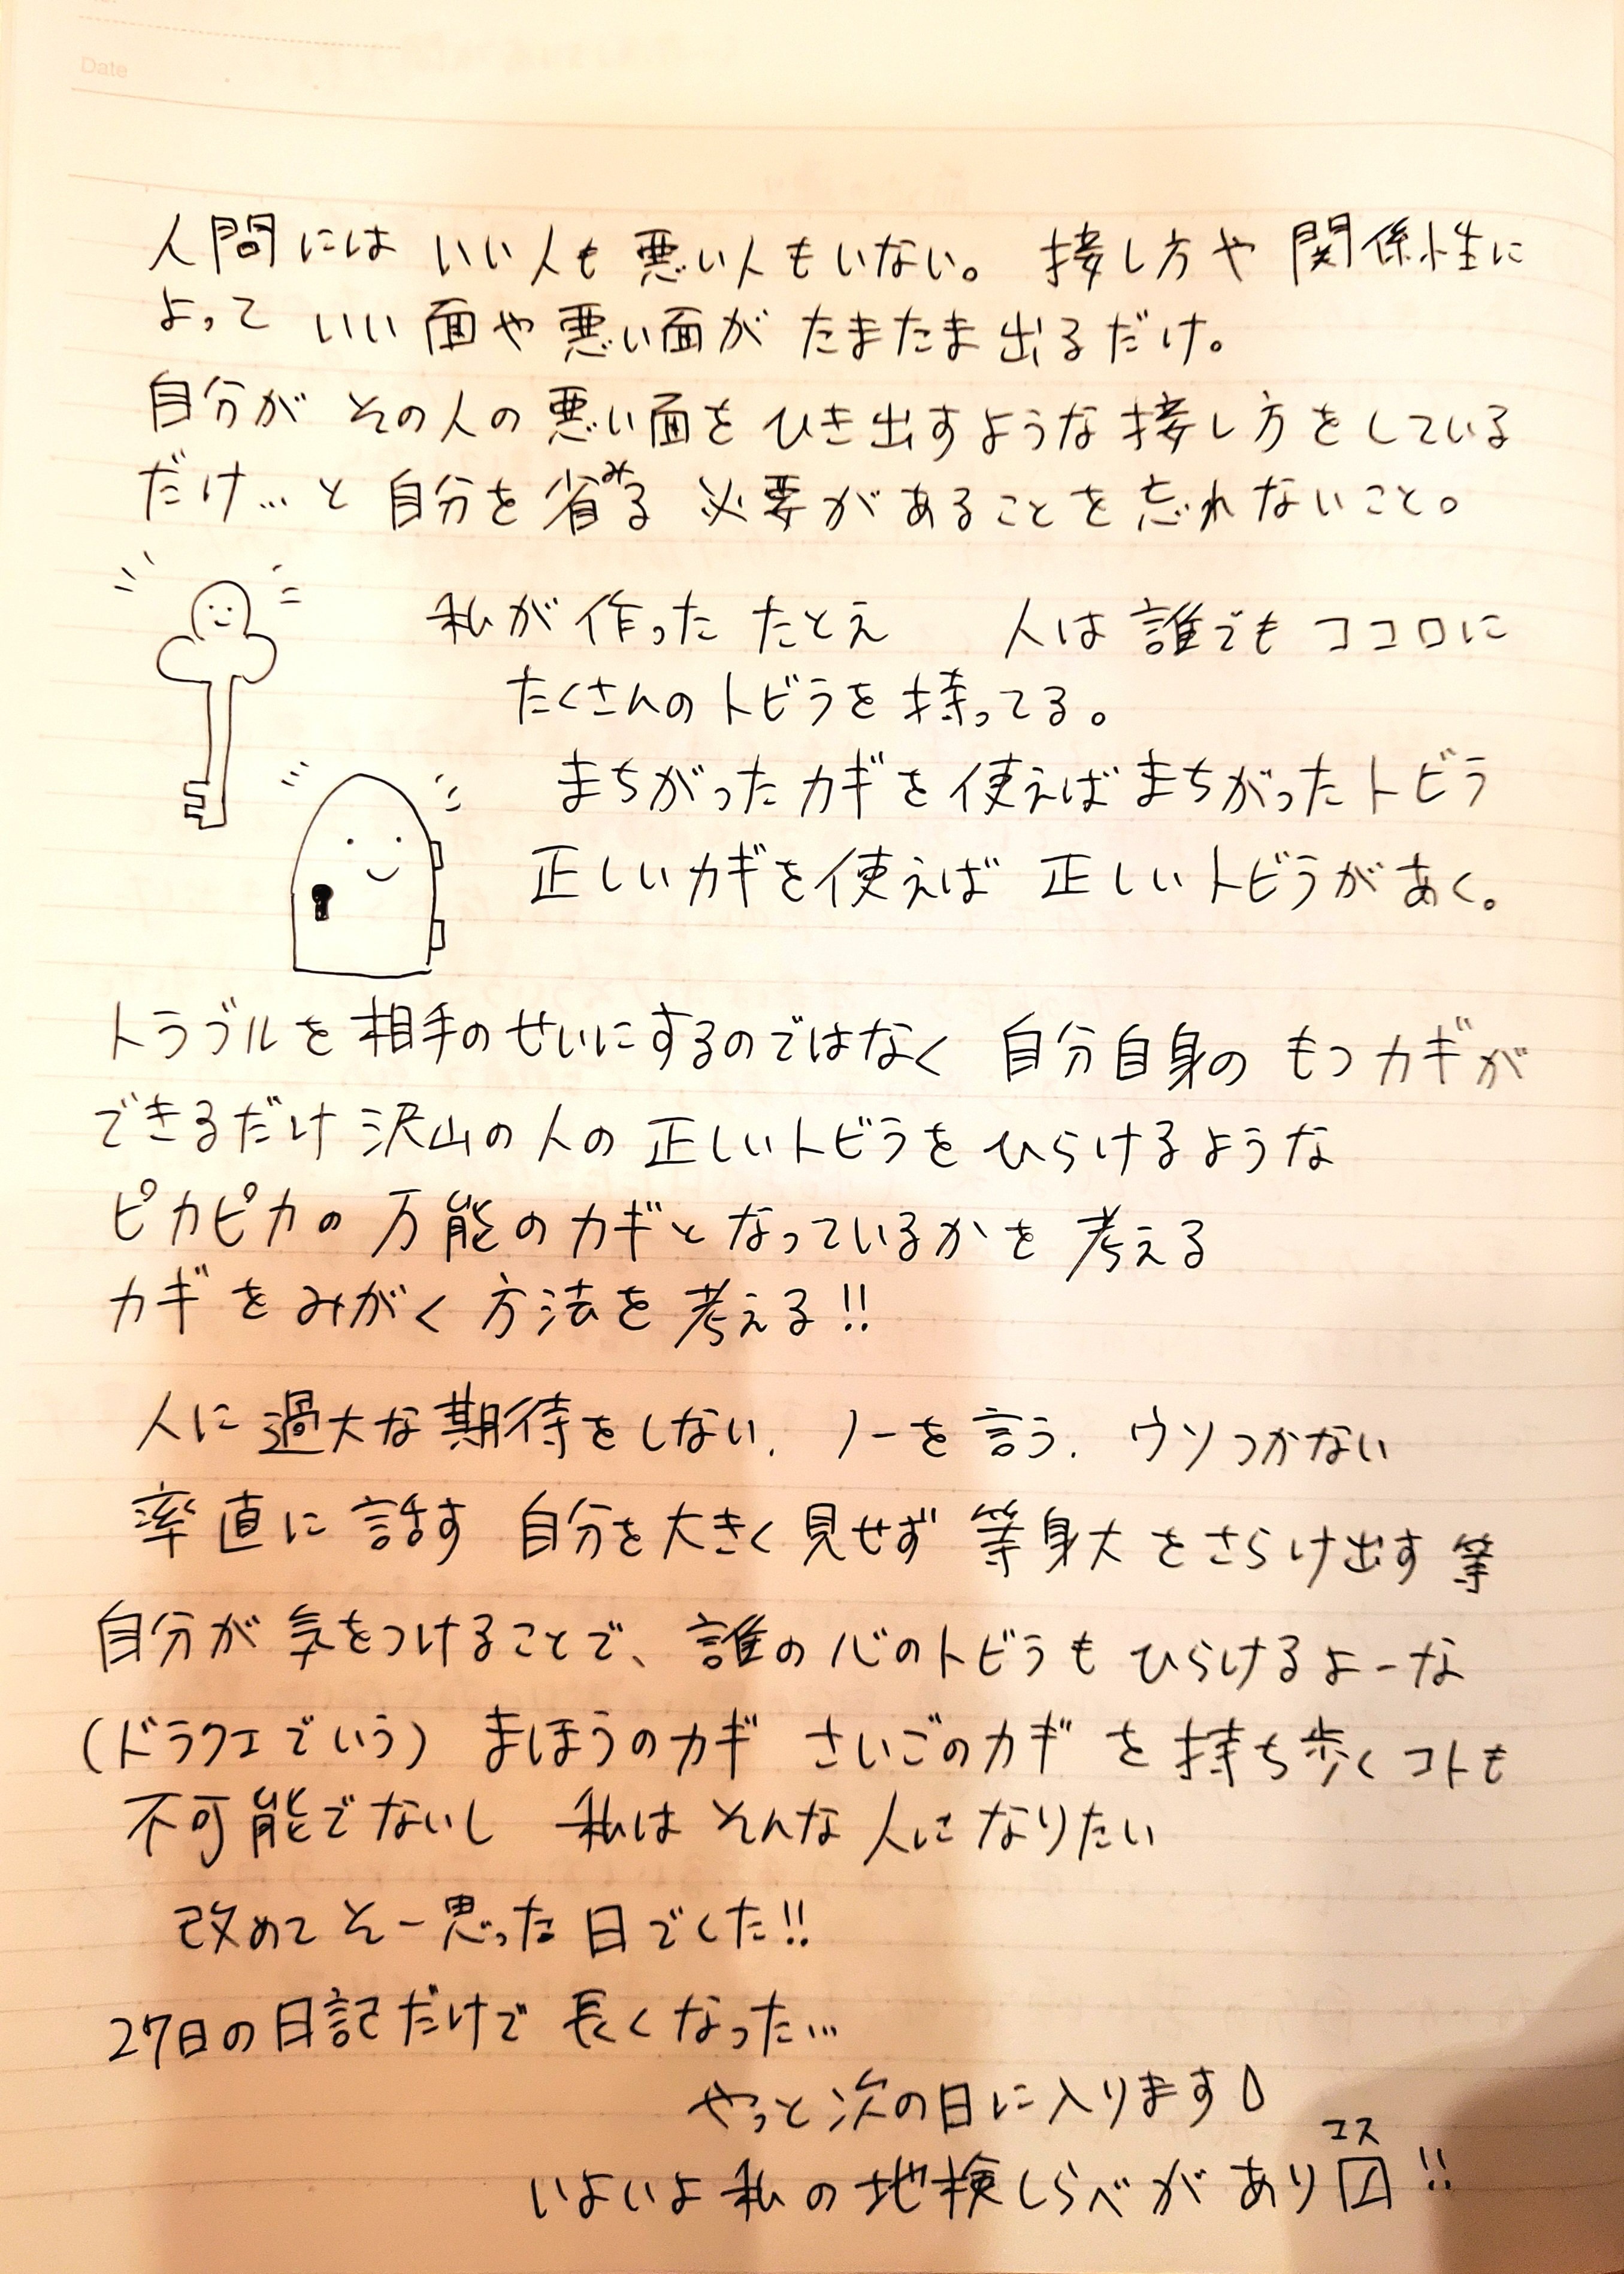 Date
人間には いい人も 悪い人もいない。 接し方や 関係性に
よって いい面や悪い面が たまたま出るだけ。
自分が その人の悪い面を ひき出すような接し方をしている
だけ… と 自分を省みる 必要があることを忘れないこと。
私が作った たとえ 人は 誰でも ココロに
たくさんのトビラを持ってる。
まちがったカギを使えばまちがったトビラ
正しいカギを使えば 正しいトビラがあく。
トラブルを相手のせいにするのではなく 自分自身の もつカギが
できるだけ沢山の人の 正しいトビラをひらけるような
ピカピカの 万能のカギとなっているかを 考える
カギをみがく方法を考える!!
人に過大な期待をしない. ノーを言う. ウソつかない
率直に話す 自分を大きく見せず 等身大をさらけ出す 等
自分が気をつけることで、誰の心のトビラも ひらけるよーな
(ドラクエでいう) まほうのカギ さいごのカギ を持ち歩くコトも
不可能でないし 私は そんな人になりたい
改めてそー思った日でした!!
27日の日記だけで長くなった…
やっと次の日に入ります
いよいよ私の地検しらべがあり
コス
!!